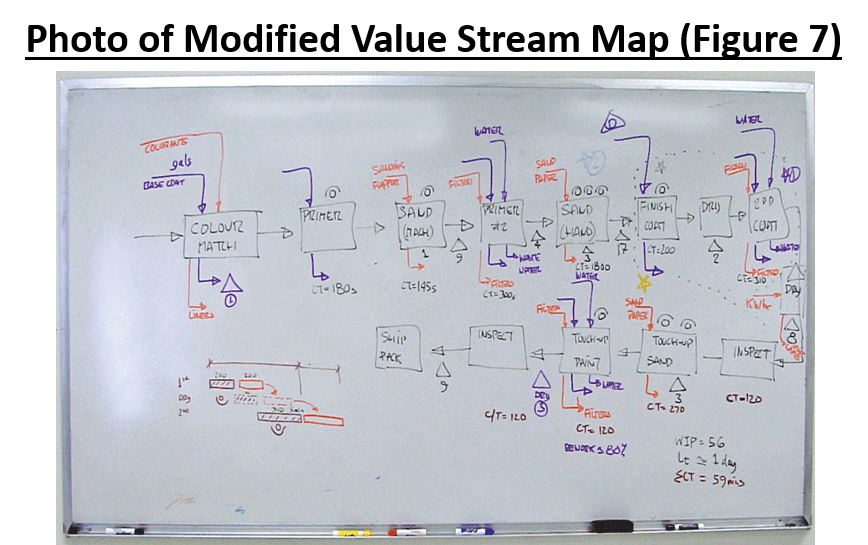 Photo of Modified Value Stream Map (Figure 7)
COLORANTS
gals
BASE COAT
COLOUR
MATCH
1
LINERS
PRIMER
CT=180s
SANDING
SAND
(MACH)
1
CT=145s
9
WATER
FILTER
PRIMER
#2
WASTE
WATER
FILTERS
CT=300s
4
SAND
PAPER
SAND
(HAND)
3
CT=1800
17
FINISH
COAT
CT=200
DRY
2
WATER
FILTER
2ND
COAT
WATER
FILTERS
CT=310
DRY
KW/hr
8
INSPECT
CT=120
SAND
PAPER
TOUCH-UP
SAND
3
CT=270
WATER
FILTER
TOUCH-UP
PAINT
WATER
FILTERS
CT=120
REWORK ≈ 80%
DRY
3
INSPECT
C/T=120
9
SHIP
PACK
1st
DRY
2nd
200
200
310
WIP=56
Lt ≃ 1 day
ΣCT = 59mins